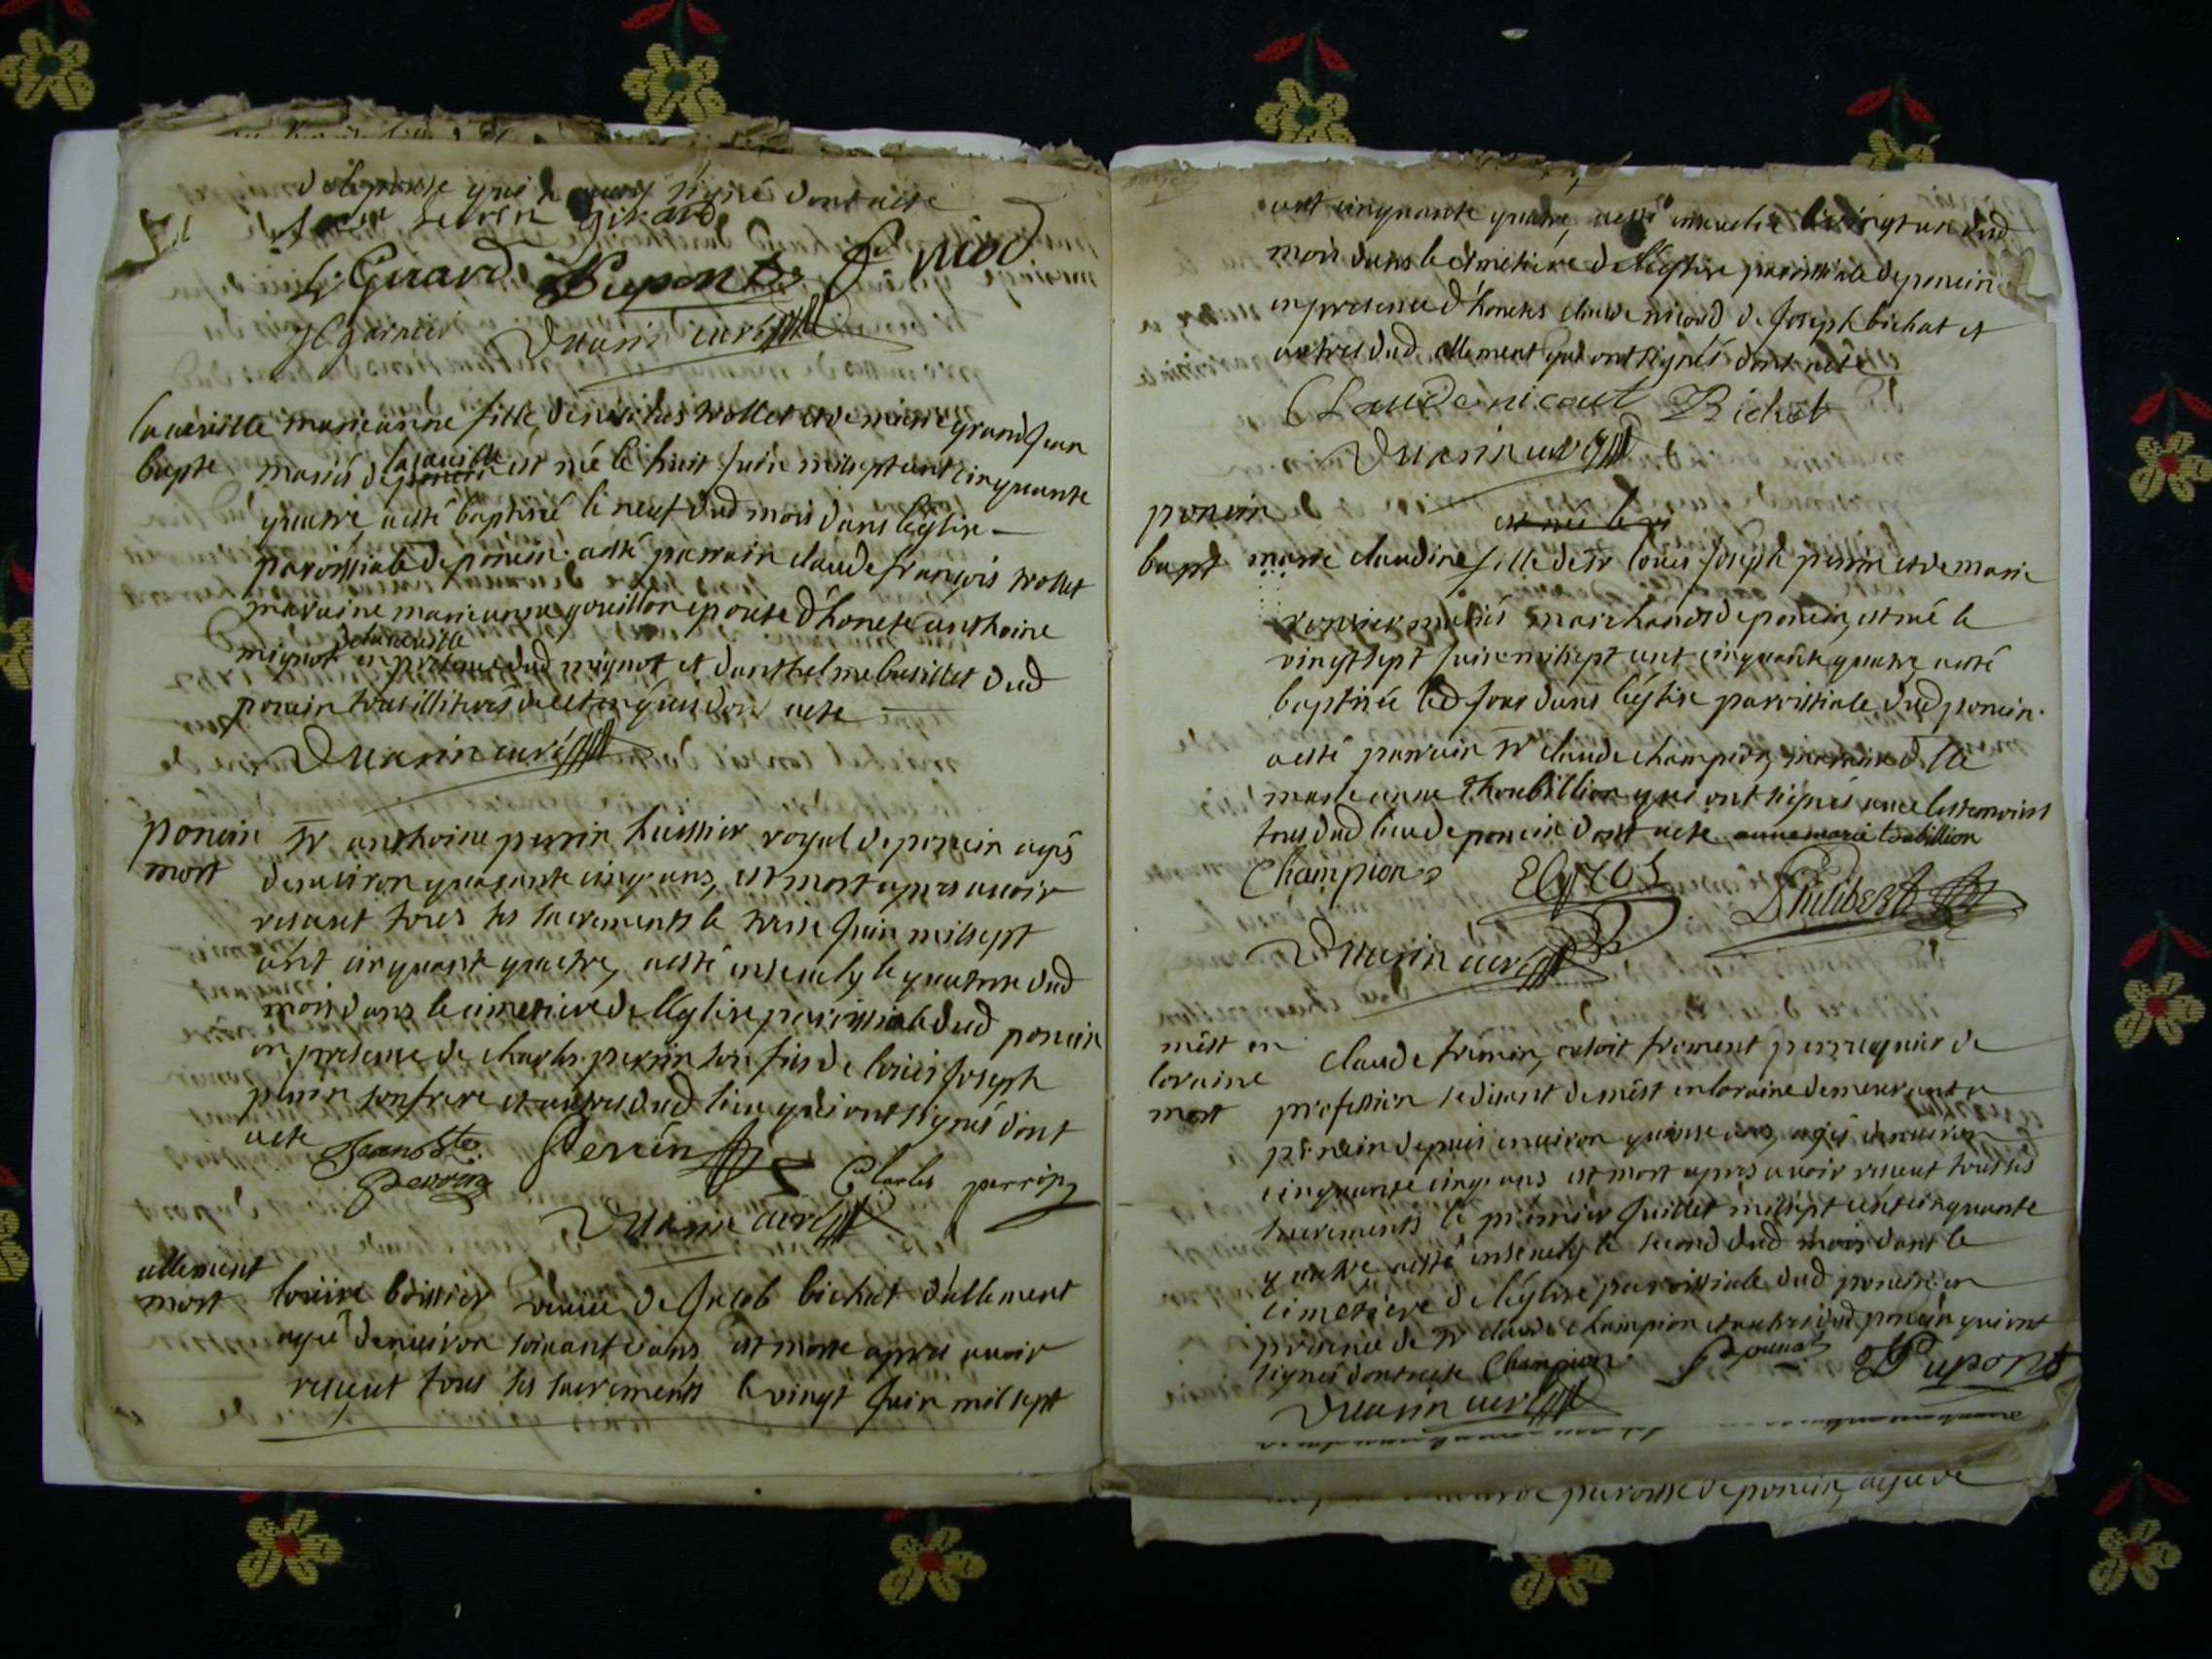 qui signé dont acte
girard
L Girard Dupont
Duarin curé
la cueille marieanne fille de nicolas trollet et de marie grand Jean
bapte mariés de poncin lacueille est né le huit Juin mil sept cent cinquante
quatre, a esté baptisé le neuf dud mois dans léglise
paroissiale de poncin. a esté parrain claude françois trollet
maraine marieanne gouillon epouse d'honete anthoine
mignot delacueille en presence dud mignot et d'anthelme busillet dud
poncin tous illiterés de ce enquis dont acte
Duarin curé
poncin Sr anthoine perrin huissier royal de poncin agés
mort denviron quarante cinq ans, est mort apres avoir
reseut tous les sacrements le treise Juin mil sept
cent cinquante quatre, a esté insevely le quatorse dud
mois dans le cimetiere de léglise paroissiale dud poncin
en presence de charles perrin son fils de loüis Joseph
perrin son frere et autres dud lieu qui ont signés dont
acte
Perrin Perrin Charles perrin
Duarin curé
allement
mort loüise boissier veuve de Jacob bichat d'allement
agée denviron soixante ans est morte apres avoir
reseut tous les sacrements le vingt Juin mil sept
cent cinquante quatre, a esté insevelie le vingt un dud
mois dans le cimetiere de léglise paroissiale de poncin
en presence d'honetes claude nicoud de Joseph bichat et
autres dud allement qui ont signés dont acte
Claude nicout Bichat
Duarin curé
poncin est née le
bapt marie claudine fille de Sr loüis Joseph perrin et de marie
mariés marchands de poncin, est né le
vingt sept Juin mil sept cent cinquante quatre, a esté
baptisée led Jour dans léglise paroissiale dud poncin.
a esté parrain Sr claude champion, maraine dlle
marie anne Thoubillion qui ont signés avec les temoins
tous dud lieu de poncin dont acte anne marie toubillion
Champion Philibert
Duarin curé
mêst en claude fremin, ou soit froment perruquier de
loraine profession se disant de mêst en loraine demeurant a
mort poncin depuis environ quinse ans, agés denviron
cinquante cinq ans est mort apres avoir reseut tous les
sacrements le premier Juillet mil sept cent cinquante
quatre a esté insevely le second dud mois dans le
cimetiere de léglise paroissiale dud poncin en
presence de Sr claude champion et autres dud poncin qui ont
signés dont acte Champion Dupont
Duarin curé
paroisse de poncin, agée de